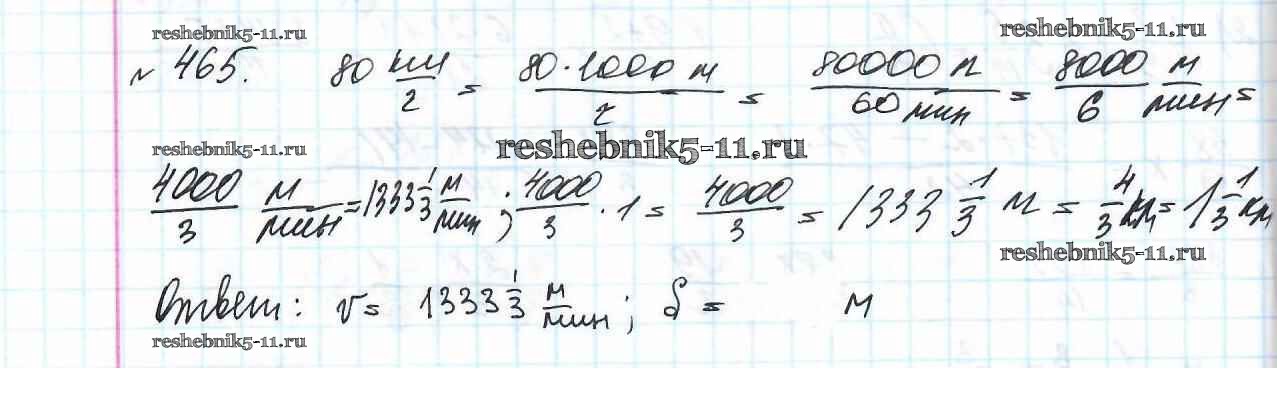 reshebnik5-11.ru reshebnik5-11.ru
№ 465. 80 км/г = 80·1000 м/г = 80000 м/60 мин = 8000/6 м/мин =
reshebnik5-11.ru reshebnik5-11.ru
4000/3 м/мин = 1333 1/3 м/мин ; 4000/3 · 1 = 4000/3 = 1333 1/3 м = 4/3 км = 1 1/3 км
reshebnik5-11.ru
Ответ: v = 1333 1/3 м/мин ; S = м
reshebnik5-11.ru